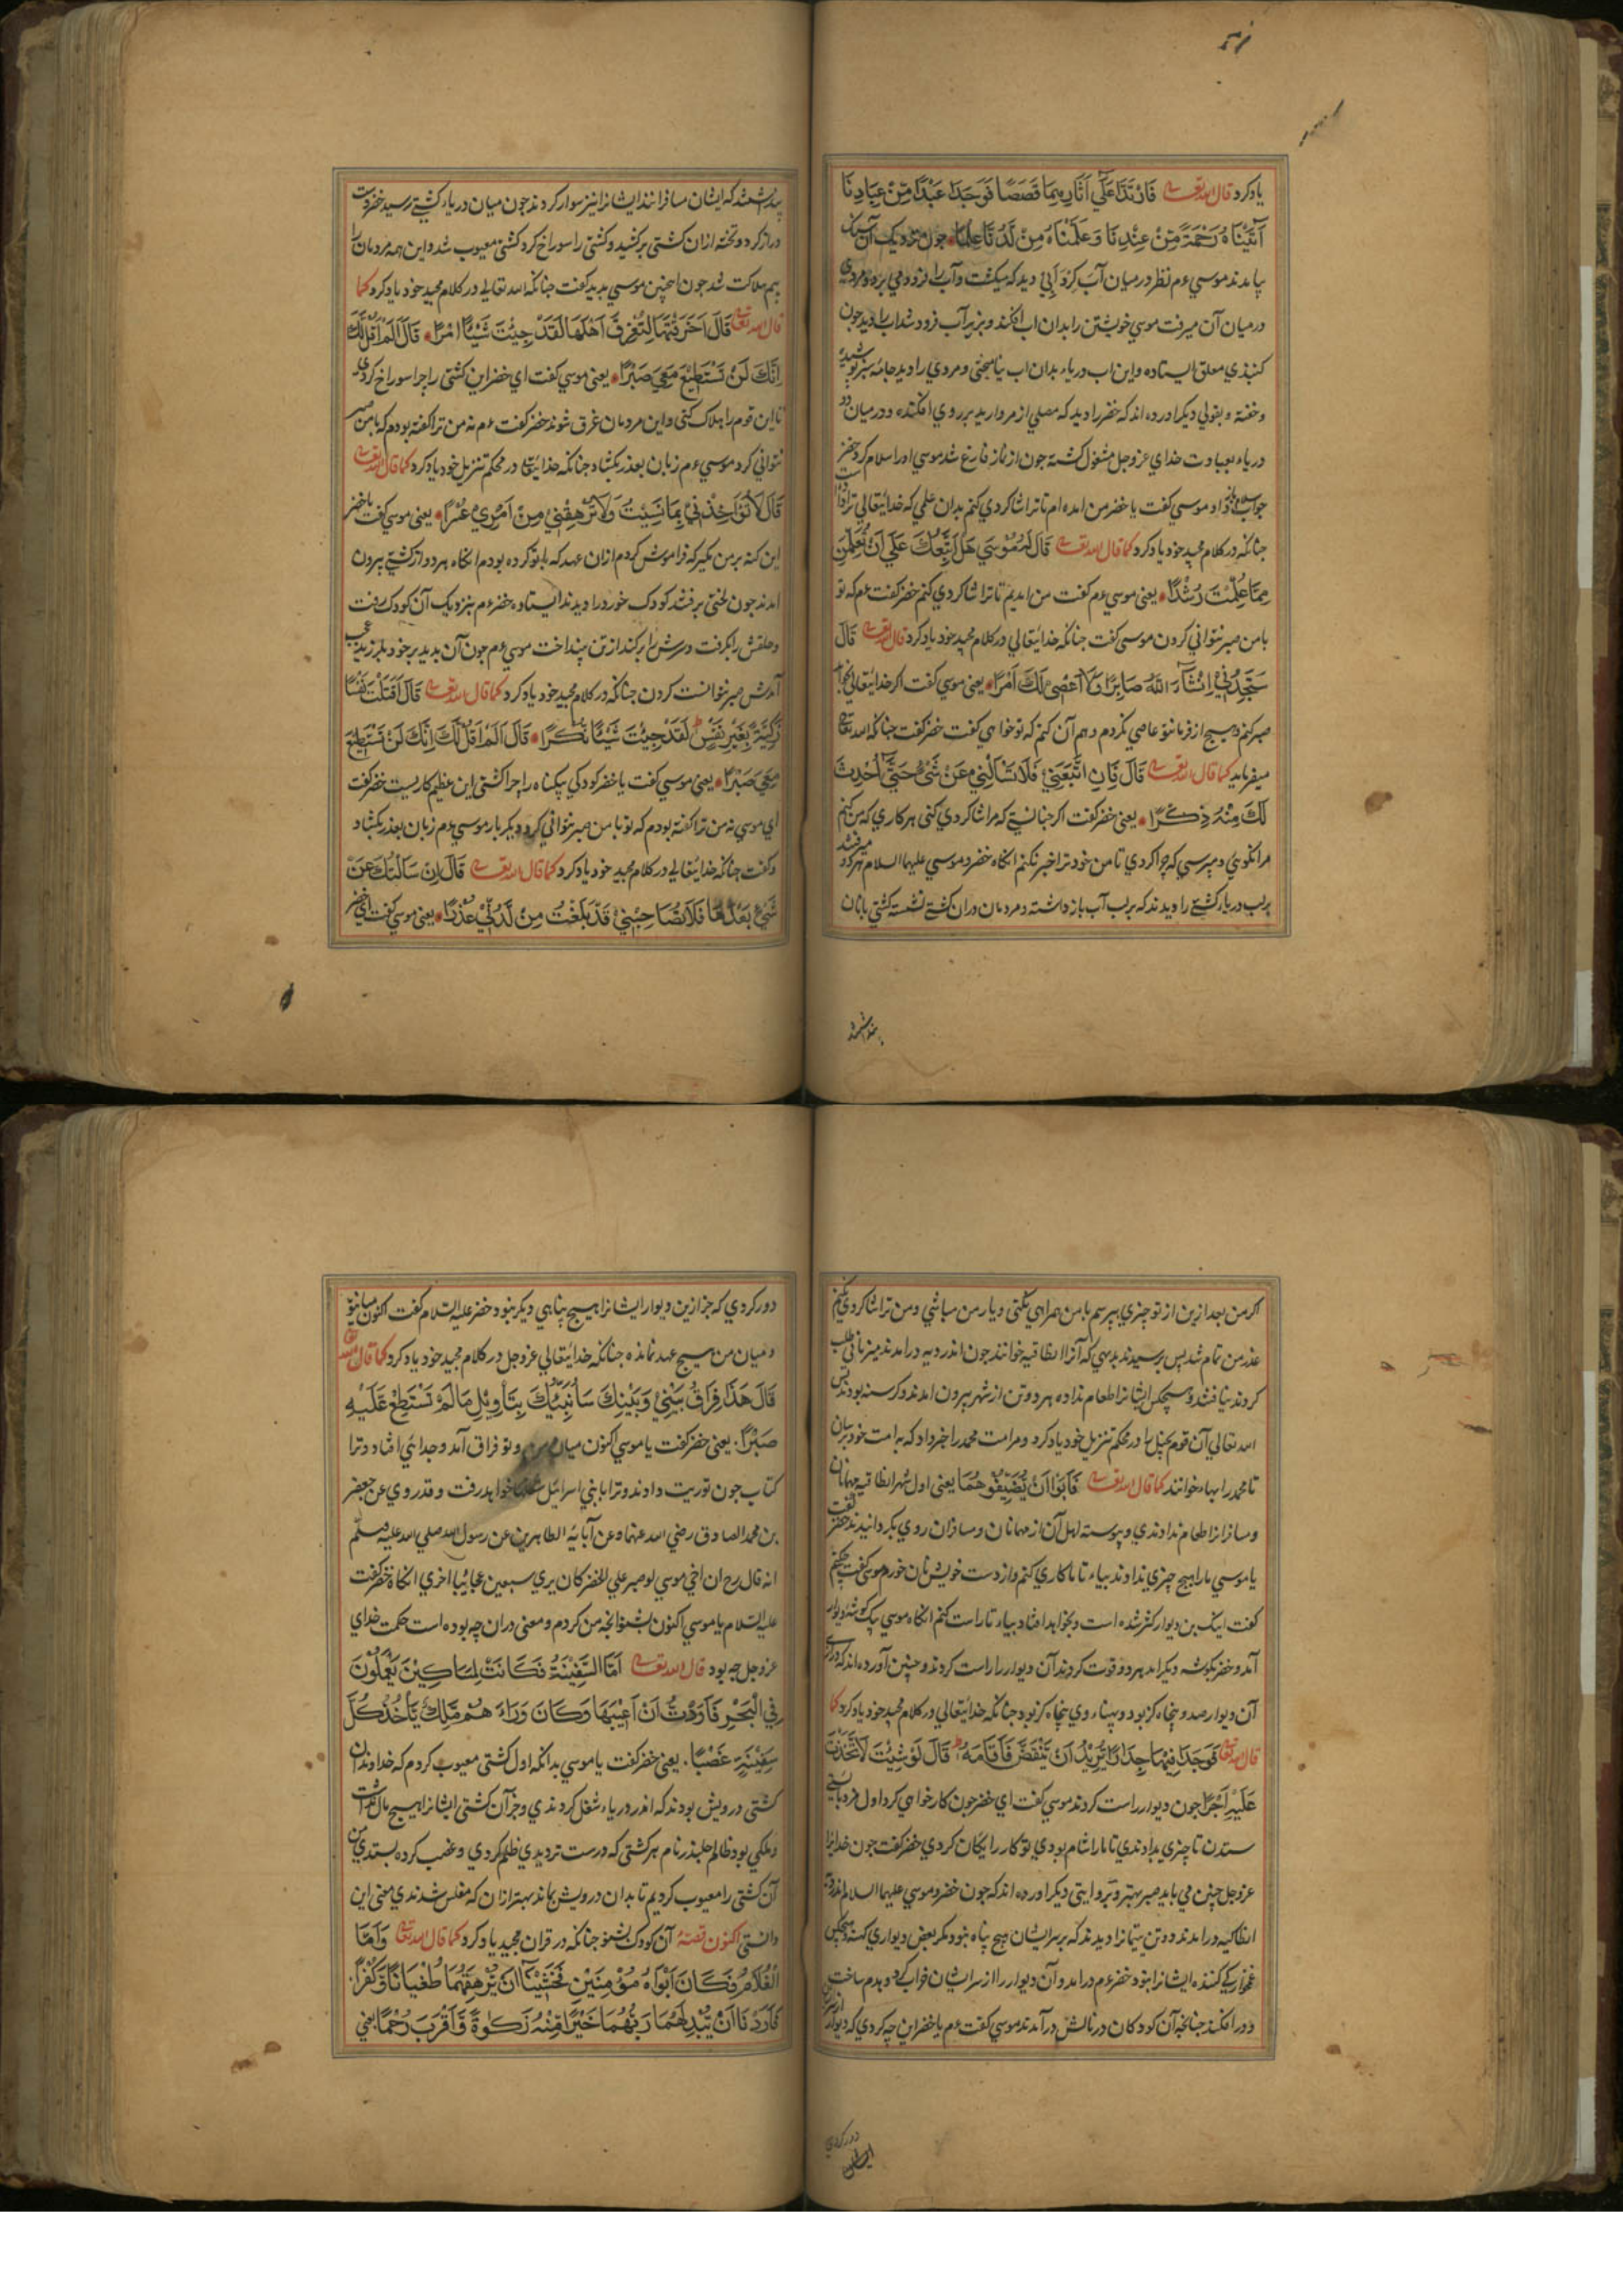 یاد کرد قال الله تعالی فَارْتَدَّا عَلَی آثَارِهِمَا قَصَصًا فَوَجَدَا عَبْدًا مِنْ عِبَادِنَا
آتَيْنَاهُ رَحْمَةً مِنْ عِنْدِنَا وَعَلَّمْنَاهُ مِنْ لَدُنَّا عِلْمًا چون نزدیک آن سنک
بیامدند موسی ءم نظر در میان آب کرد آبی دید که میکشت و آب را فرو دمی برد و مردی
در میان آن میرفت موسی خویشتن را بدان آب افکند و بزیر آب فرود شد آب را دید چون
کنبذی معلق ایستاده و این آب دریاء بدان آب نیامیختی و مردی را دید جامۀ سبز پوشیده
و خفته و بقولی دیکر آورده اند که خضر را دید که مصلی از مروارید بر روی افکنده و در میان دو
دریاء بعبادت خدای عز و جل مشغول کشته چون از نماز فارغ شد موسی او را سلام کرد خضر
جواب سلام باز داد موسی کفت یا خضر من آمده ام تا ترا شاکردی کنم بدان علمی که خدایتعالی ترا داده است
چنانکه در کلام مجید خود یاد کرد کما قال الله تعالی قَالَ لَهُ مُوسَی هَلْ أَتَّبِعُكَ عَلَی أَنْ تُعَلِّمَنِ
مِمَّا عُلِّمْتَ رُشْدًا یعنی موسی ءم کفت من امدیم تا ترا شاکردی کنم خضر کفت ءم که تو
با من صبر نتوانی کردن موسی کفت چنانکه خدایتعالی در کلام مجید خود یاد کرد قال الله تعالی قَالَ
سَتَجِدُنِي إِنْشَآءَ اللَّهُ صَابِرًا وَلَا أَعْصِي لَكَ أَمْرًا یعنی موسی کفت اکر خدایتعالی بخواهد
صبر کنم و هیچ از فرمان تو عاصی نکردم و هم آن کنم که تو خواهی کفت خضر کفت چنانکه الله تعالی
میفرماید کما قال الله تعالی قَالَ فَإِنِ اتَّبَعْتَنِي فَلَا تَسْأَلْنِي عَنْ شَيْءٍ حَتَّی أُحْدِثَ
لَكَ مِنْهُ ذِكْرًا یعنی خضر کفت اکر چنانستی که مرا شاکردی کنی هر کاری که من کنم
مرا نکویی و نپرسی که چرا کردی تا من خود ترا خبر نکنم آنکاه خضر و موسی علیهما السلام هر دو میرفتند
بر لب دریاء کشتی را دیدند که بر لب آب باز داشته و مردمان در آن کشتی نشسته کشتی بانان
پنداشتند که ایشان مسافرانند ایشانرا نیز سوار کردند چون میان دریاء کشتی رسید خضر دست
دراز کرد و تخته از ان کشتی بر کشید و کشتی را سوراخ کرد کشتی معیوب شد و این همه مردمان را
بیم هلاکت شد چون اینچنین موسی بدید کفت چنانکه الله تعالی در کلام مجید خود یاد کرد کما
قال الله تعالی قَالَ أَخَرَقْتَهَا لِتُغْرِقَ أَهْلَهَا لَقَدْ جِئْتَ شَيْئًا إِمْرًا قَالَ أَلَمْ أَقُلْ لَكَ
إِنَّكَ لَنْ تَسْتَطِيعَ مَعِيَ صَبْرًا یعنی موسی کفت ای خضر این کشتی را چرا سوراخ کردی
تا این قوم را هلاک کنی و این مردمان غرق شوند خضر کفت ءم نه من ترا کفته بودم که با من صبر
نتوانی کرد موسی ءم زبان بعذر بکشاد چنانکه خدایتعالی در محکم تنزیل خود یاد کرد کما قال الله تعالی
قَالَ لَا تُؤَاخِذْنِي بِمَا نَسِيتُ وَلَا تُرْهِقْنِي مِنْ أَمْرِي عُسْرًا یعنی موسی کفت یا خضر
این کنه بر من مکیر که فراموش کردم از ان عهد که با تو کرده بودم انکاه هر دو از کشتی بیرون
امدند چون لختی برفتند کودک خورد را دیدند ایستاده خضر ءم بنزدیک آن کودک رفت
و حلقش را بکرفت و سرش را برکند از تن بینداخت موسی ءم چون آن بدید بر خود بلرزید عجب
آمدش صبر نتوانست کردن چنانکه در کلام مجید خود یاد کرد کما قال الله تعالی قَالَ أَقَتَلْتَ نَفْسًا
زَكِيَّةً بِغَيْرِ نَفْسٍ لَقَدْ جِئْتَ شَيْئًا نُكْرًا قَالَ أَلَمْ أَقُلْ لَكَ إِنَّكَ لَنْ تَسْتَطِيعَ
مَعِيَ صَبْرًا یعنی موسی کفت یا خضر کودکی بیکناه را چرا کشتی این عظیم کاریست خضر کفت
ای موسی نه من ترا کفته بودم که تو با من صبر نتوانی کرد دیکر بار موسی ءم زبان بعذر بکشاد
و کفت چنانکه خدایتعالی در کلام مجید خود یاد کرد کما قال الله تعالی قَالَ إِنْ سَأَلْتُكَ عَنْ
شَيْءٍ بَعْدَهَا فَلَا تُصَاحِبْنِي قَدْ بَلَغْتَ مِنْ لَدُنِّي عُذْرًا یعنی موسی کفت ای خضر
اکر من بعد ازین از تو چیزی بپرسم با من همراهی نکنی و یار من مباشی و من ترا شاکردی نکنم
عذر من تمام شد پس برسیدند بدیهی که آنرا انطاقیه خوانند چون اندر دیه در امدند میزبانی طلب
کردند نیافتند و هیچکس ایشانرا طعام نداده هر دو تن از شهر بیرون امدند و کرسنه بودند پس
الله تعالی آن قوم بخیل را در محکم تنزیل خود یاد کرد و مر امت محمد را خبر داد که به امت خود برسان
تا محمد را بهاء خوانند کما قال الله تعالی فَأَبَوْا أَنْ يُضَيِّفُوهُمَا یعنی اول شهر انطاقیه مهمانان
و مسافرانرا طعام ندادندی و پیوسته اهل آن از مهمانان و مسافران روی بکردانیدند خضر کفت
یا موسی ما را هیچ چیزی ندادند بیاء تا ما کاری کنم و از دست خویش نان خورم موسی کفت چکنم
کفت اینک بن دیوار کژ شده است و بخواهد افتاد بیاء تا راست کنم انکاه موسی یک کوشه دیوار
آمد و خضر بکوشه دیکر امد هر دو قوت کردند آن دیوار را راست کردند و چنین آورده اند که درازی
آن دیوار صد و پنجاه کز بود و پهناء وی پنجاه کز بود چنانکه خدایتعالی در کلام مجید خود یاد کرد کما
قال الله تعالی فَوَجَدَا فِيهَا جِدَارًا يُرِيدُ أَنْ يَنْقَضَّ فَأَقَامَهُ قَالَ لَوْ شِئْتَ لَاتَّخَذْتَ
عَلَيْهِ أَجْرًا چون دیوار راست کردند موسی کفت ای خضر چون کار خواهی کرد اول مزد بایستی
ستدن تا چیزی بدادندی تا ما را شام بودی تو کار رایکان کردی خضر کفت چون خدایرا
عز و جل چنین می باید صبر بهتر و بروایتی دیکر اورده اند که چون خضر و موسی علیهما السلام اندر دیه
انطاکیه درامدند دو تن یتیمانرا دیدند که بر سر ایشان هیچ پناه نبود مکر بعض دیواری کهنه و هیچکس
غمخوارکی کننده ایشانرا نبود خضر ءم درامد و آن دیوار را از سر ایشان خراب کرد و بدم ساخت
و در افکند چنانچه آن کودکان در نالش درآمدند موسی کفت ءم یا خضر این چه کردی که دیوار
دور کردی که جز ازین دیوار ایشانرا هیچ پناهی دیکر نبود خضر علیه السلام کفت اکنون میان تو
و میان من هیچ عهد نمانده چنانکه خدایتعالی عز و جل در کلام مجید خود یاد کرد کما قال الله تعالی
قَالَ هَذَا فِرَاقُ بَيْنِي وَبَيْنِكَ سَأُنَبِّئُكَ بِتَأْوِيلِ مَا لَمْ تَسْتَطِعْ عَلَيْهِ
صَبْرًا یعنی خضر کفت یا موسی اکنون میان من و تو فراق آمد و جدایی افتاد و ترا
کتاب چون توریت دادند و ترا با بنی اسرائیل خواهد رفت و قد روی عن جعفر
بن محمد الصادق رضی الله عنهما و عن آبائه الطاهرین عن رسول الله صلی الله علیه و سلم
انه قال رح ان اخی موسی لو صبر علی الخضر کان یری سبعین عجایبا اخری انکاه خضر کفت
علیه السلام یا موسی اکنون بشنو انچه من کردم و معنی در ان چه بوده است حکمت خدای
عز و جل چه بود قال الله تعالی أَمَّا السَّفِينَةُ فَكَانَتْ لِمَسَاكِينَ يَعْمَلُونَ
فِي الْبَحْرِ فَأَرَدْتُ أَنْ أَعِيبَهَا وَكَانَ وَرَاءَهُمْ مَلِكٌ يَأْخُذُ كُلَّ
سَفِينَةٍ غَصْبًا یعنی خضر کفت یا موسی بدانکه اول کشتی معیوب کردم که خداوندان
کشتی درویش بودند که اندر دریاء شغل کردندی و جز آن کشتی ایشانرا هیچ مال نداشت
و ملکی بود ظالم جلیذر نام هر کشتی که درست تر دیدی ظلم کردی و غصب کرده بستدی من
آن کشتی را معیوب کردیم تا بدان درویش بماند بهتر ازان که مفلس شدندی معنی این
دانستی اکنون قصۀ آن کودک بشنو چنانکه در قران مجید یاد کرد کما قال الله تعالی وَأَمَّا
الْغُلَامُ فَكَانَ أَبَوَاهُ مُؤْمِنَيْنِ فَخَشِينَا أَنْ يُرْهِقَهُمَا طُغْيَانًا وَكُفْرًا
فَأَرَدْنَا أَنْ يُبْدِلَهُمَا رَبُّهُمَا خَيْرًا مِنْهُ زَكَوٰةً وَأَقْرَبَ رُحْمًا یعنی
دور کردی